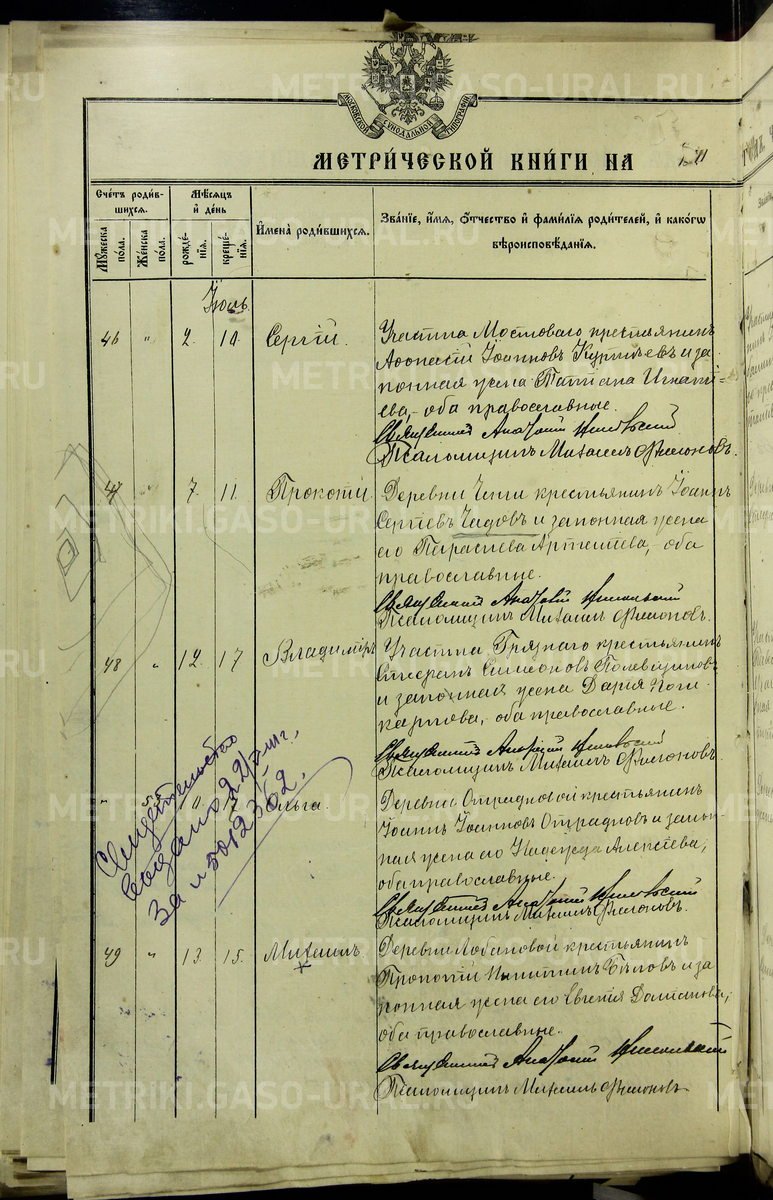 МОСКОВСКОЙ СѴНОДАЛЬНОЙ ТИПОГРАФІИ
МЕТРИ́ЧЕСКОЙ КНИ́ГИ НА
Сче́тъ роди́в-
шихся.
Мѣ́сяцъ
и҆ де́нь
Мꙋ́жеска
по́ла.
Же́нска
по́ла.
рожде́-
нїѧ.
креще́-
нїѧ.
И҆мена̀ роди́вшихся.
Зва́нїе, и҆́мѧ, ѻ҆́тчество и҆ фами́лїѧ роди́телей, и҆ како́гѡ
вѣроисповѣ́данїѧ.
Іюль
46 " 2. 10. Сергій.
Участка Мостоваго крестьянинъ
Аѳонасій Іоанновъ и за
конная жена Татіана Игнаті=
ева, оба православные.
Священникъ Анатолій
Псаломщикъ Михаилъ Филоновъ.
47 " 7. 11. Прокопій
Деревни крестьянинъ Іоаннъ
Сергіевъ Чадовъ и законная жена
его Параскева Артемьева, оба
православные.
Священникъ Анатолій
Псаломщикъ Михаилъ Филоновъ.
48 " 12. 17 Владиміръ
Участка Грязнаго крестьянинъ
Стефанъ Симеоновъ
и законная жена Дарія Поли-
карпова, оба православные.
Священникъ Анатолій
Псаломщикъ Михаилъ Филоновъ.
Свидѣтельство
выдано
за № 2352.
" 17 Ольга.
Деревни Отрадновой крестьянинъ
Іоаннъ Іоанновъ Отрадновъ и закон-
ная жена его Надежда Алексѣева,
оба православные.
Священникъ Анатолій
Псаломщикъ Михаилъ Филоновъ.
49 " 13. 15. Михаилъ
Деревни Лобановой крестьянинъ
Прокопій Никитинъ Бѣловъ и за
конная жена его Евгенія
оба православные.
Священникъ Анатолій
Псаломщикъ Михаилъ Филоновъ
METRIKI.GASO-URAL.RU